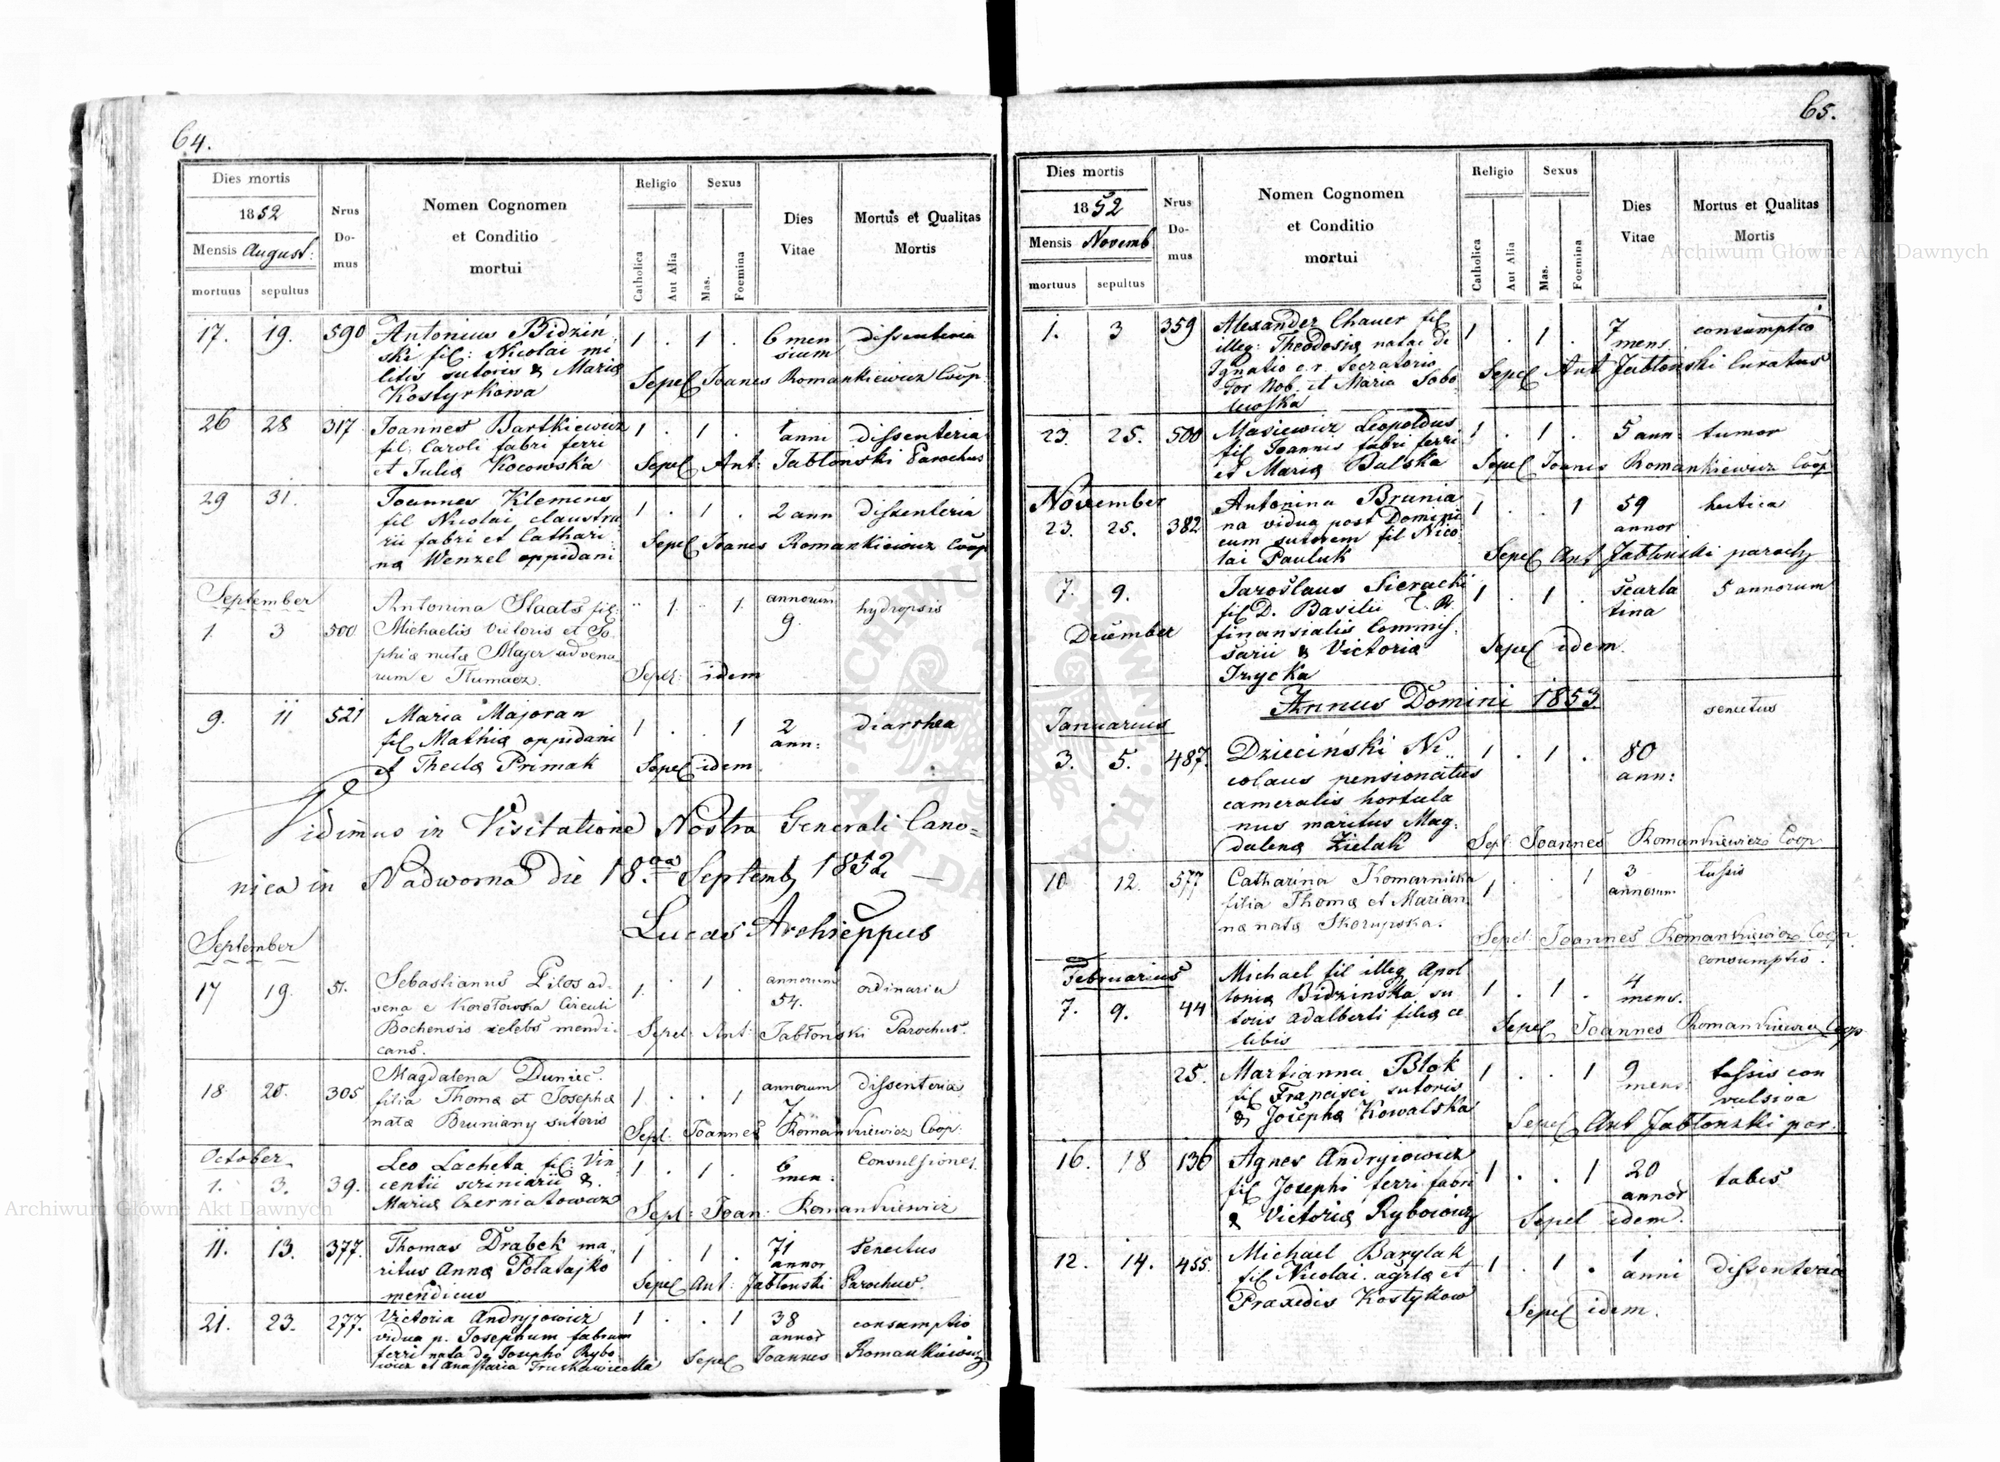 64.
Dies mortis
1852
Mensis August:
mortuus sepultus
Nrus Do- mus
Nomen Cognomen
et Conditio
mortui
Religio
Catholica
Aut Alia
Sexus
Mas.
Foemina
Dies
Vitae
Mortus et Qualitas
Mortis
17. 19. 590 Antonius Bidziń 1 . 1 . 6 men dissenteria
ski fil: Nicolai mi sium
litis sutoris & Mariæ Sepel Joanes Romankiewicz Coop.
Kostyrkowa
26 28 317 Joannes Bartkiewicz 1 . 1 . 1 anni dissenteria
fil: Caroli fabri ferri
et Juliæ Kocowska Sepel Ant: Jabłonski Parochus
29 31. Joannes Klemens 1 . 1 . 2 ann dissenteria
fil Nicolai claustra
rii fabri et Cathari Sepel Joanes Romankiewicz Coop
næ Wenzel oppidani
September
1. 3 500 Antonina Staats fil: .. 1. . 1. annorum 9. hydropsis
Michaelis vietoris et So
phiæ natæ Majer advena
rum e Tłumacz. Sepel: idem
9. 11 521 Maria Majoran 1 . . 1 2 ann: diarrhea
fil Mathiæ oppidani
et Theclæ Primak Sepel idem
Vidimus in Visitatione Nostra Generali Cano=
nica in Nadworna die 18va Septemb 1852 —
Lucas Archieppus
September
17 19. 51. Sebastianus Pilos ad- 1. . 1 . annorum 54. ordinaria
vena e Korotowka Circuli
Bochensis celebs mendi- Sepel: Ant: Jabłonski Parochus
cans.
18 20. 305 Magdalena Duniec. 1 . . 1 annorum 7 dissenteria
filia Thomæ et Josephæ
natæ Bruniany sutoris Sepl: Joannes Romankiewicz Coop.
October
1. 3. 39. Leo Lacheta fil: Vin 1 . 1 . 6 men: Convulsiones
centii scriniarii &.
Mariæ Czerniatowicz Sepl: Joan: Romankiewicz
11. 13. 377. Thomas Drabek ma 1 . 1 . 71 annor Senectus
ritus Annæ Połatajko
mendicus Sepel Ant: Jabłonski Parochus.
21. 23. 277. Victoria Andryjowicz 1 . . 1 38 annor consumptio
vidua p. Josephum fabrum
ferri nata de Josepho Rybo
wicz et Anastasia Truskawiecka Sepel Joannes Romankiewicz
65.
Dies mortis
1852
Mensis Novemb
mortuus sepultus
Nrus Do- mus
Nomen Cognomen
et Conditio
mortui
Religio
Catholica
Aut Alia
Sexus
Mas.
Foemina
Dies
Vitae
Mortus et Qualitas
Mortis
1. 3 359 Alexander Chauer fil 1 . 1 . 7 mens consumptio
illeg: Theodosiæ natæ de
Ignatio c.r. Secratorio Sepel Ant Jabłonski Curatus
For Nob. et Maria Sobo
lewska
23. 25. 500 Masiewicz Leopoldus 1 . 1 . 5 ann: tumor
fil Joannis fabri ferri
et Mariæ Bulska Sepel Joanis Romankiewicz Coop
November
23. 25. 382 Antonina Brunia 1 . . 1 59 annor hectica
na vidua post Domini
cum sutorem fil Nico
lai Pauluk Sepel Ant Jabłonski parochy
7. 9. Jarosłaus Sieracki 1 . 1 . scarla tina 5 annorum
fil D. Basilii C. R.
December
finansialis Commis
sarii & Victoriæ Sepel idem.
Irzycka
Annus Domini 1853
Januarius
3. 5. 487. Dzieciński Ni 1 . 1 . 80 ann: senectus
colaus pensionatus
cameralis hortula
nus maritus Mag.
dalenæ Zielak Sepl: Joannes Romankiewicz Coop
10 12. 577 Catharina Komarnicka 1 . . 1 3 annorum tussis
filia Thomæ et Marian
næ natæ Skorupska. Sepel: Joannes Romankiewicz Coop.
Februarius
7. 9. 44 Michael fil illeg Apol 1 . 1 . 4 mens. consumptio.
loniæ Bidzinska su
toris Adalberti filiæ ce Sepel Joannes Romankiewicz Coop
libis
25. Martianna Blok 1 . . 1 9 mens. tussis con
fil Francisci sutoris vulsiva
& Josephæ Kowalska Sepel Ant Jabłonski par.
16. 18 136 Agnes Andryiowicz 1 . . 1 20 annor tabes
fil Josephi ferri fabri
& Victoriæ Rybowicz Sepel idem.
12. 14. 455. Michael Barylak 1 . 1 . 1 anni dissenteria
fil Nicolai agrlæ et
Praxedis Kostykow Sepel idem.
Archiwum Główne Akt Dawnych
Archiwum Główne Akt Dawnych
ARCHIWUM GŁÓWNE AKT DAWNYCH